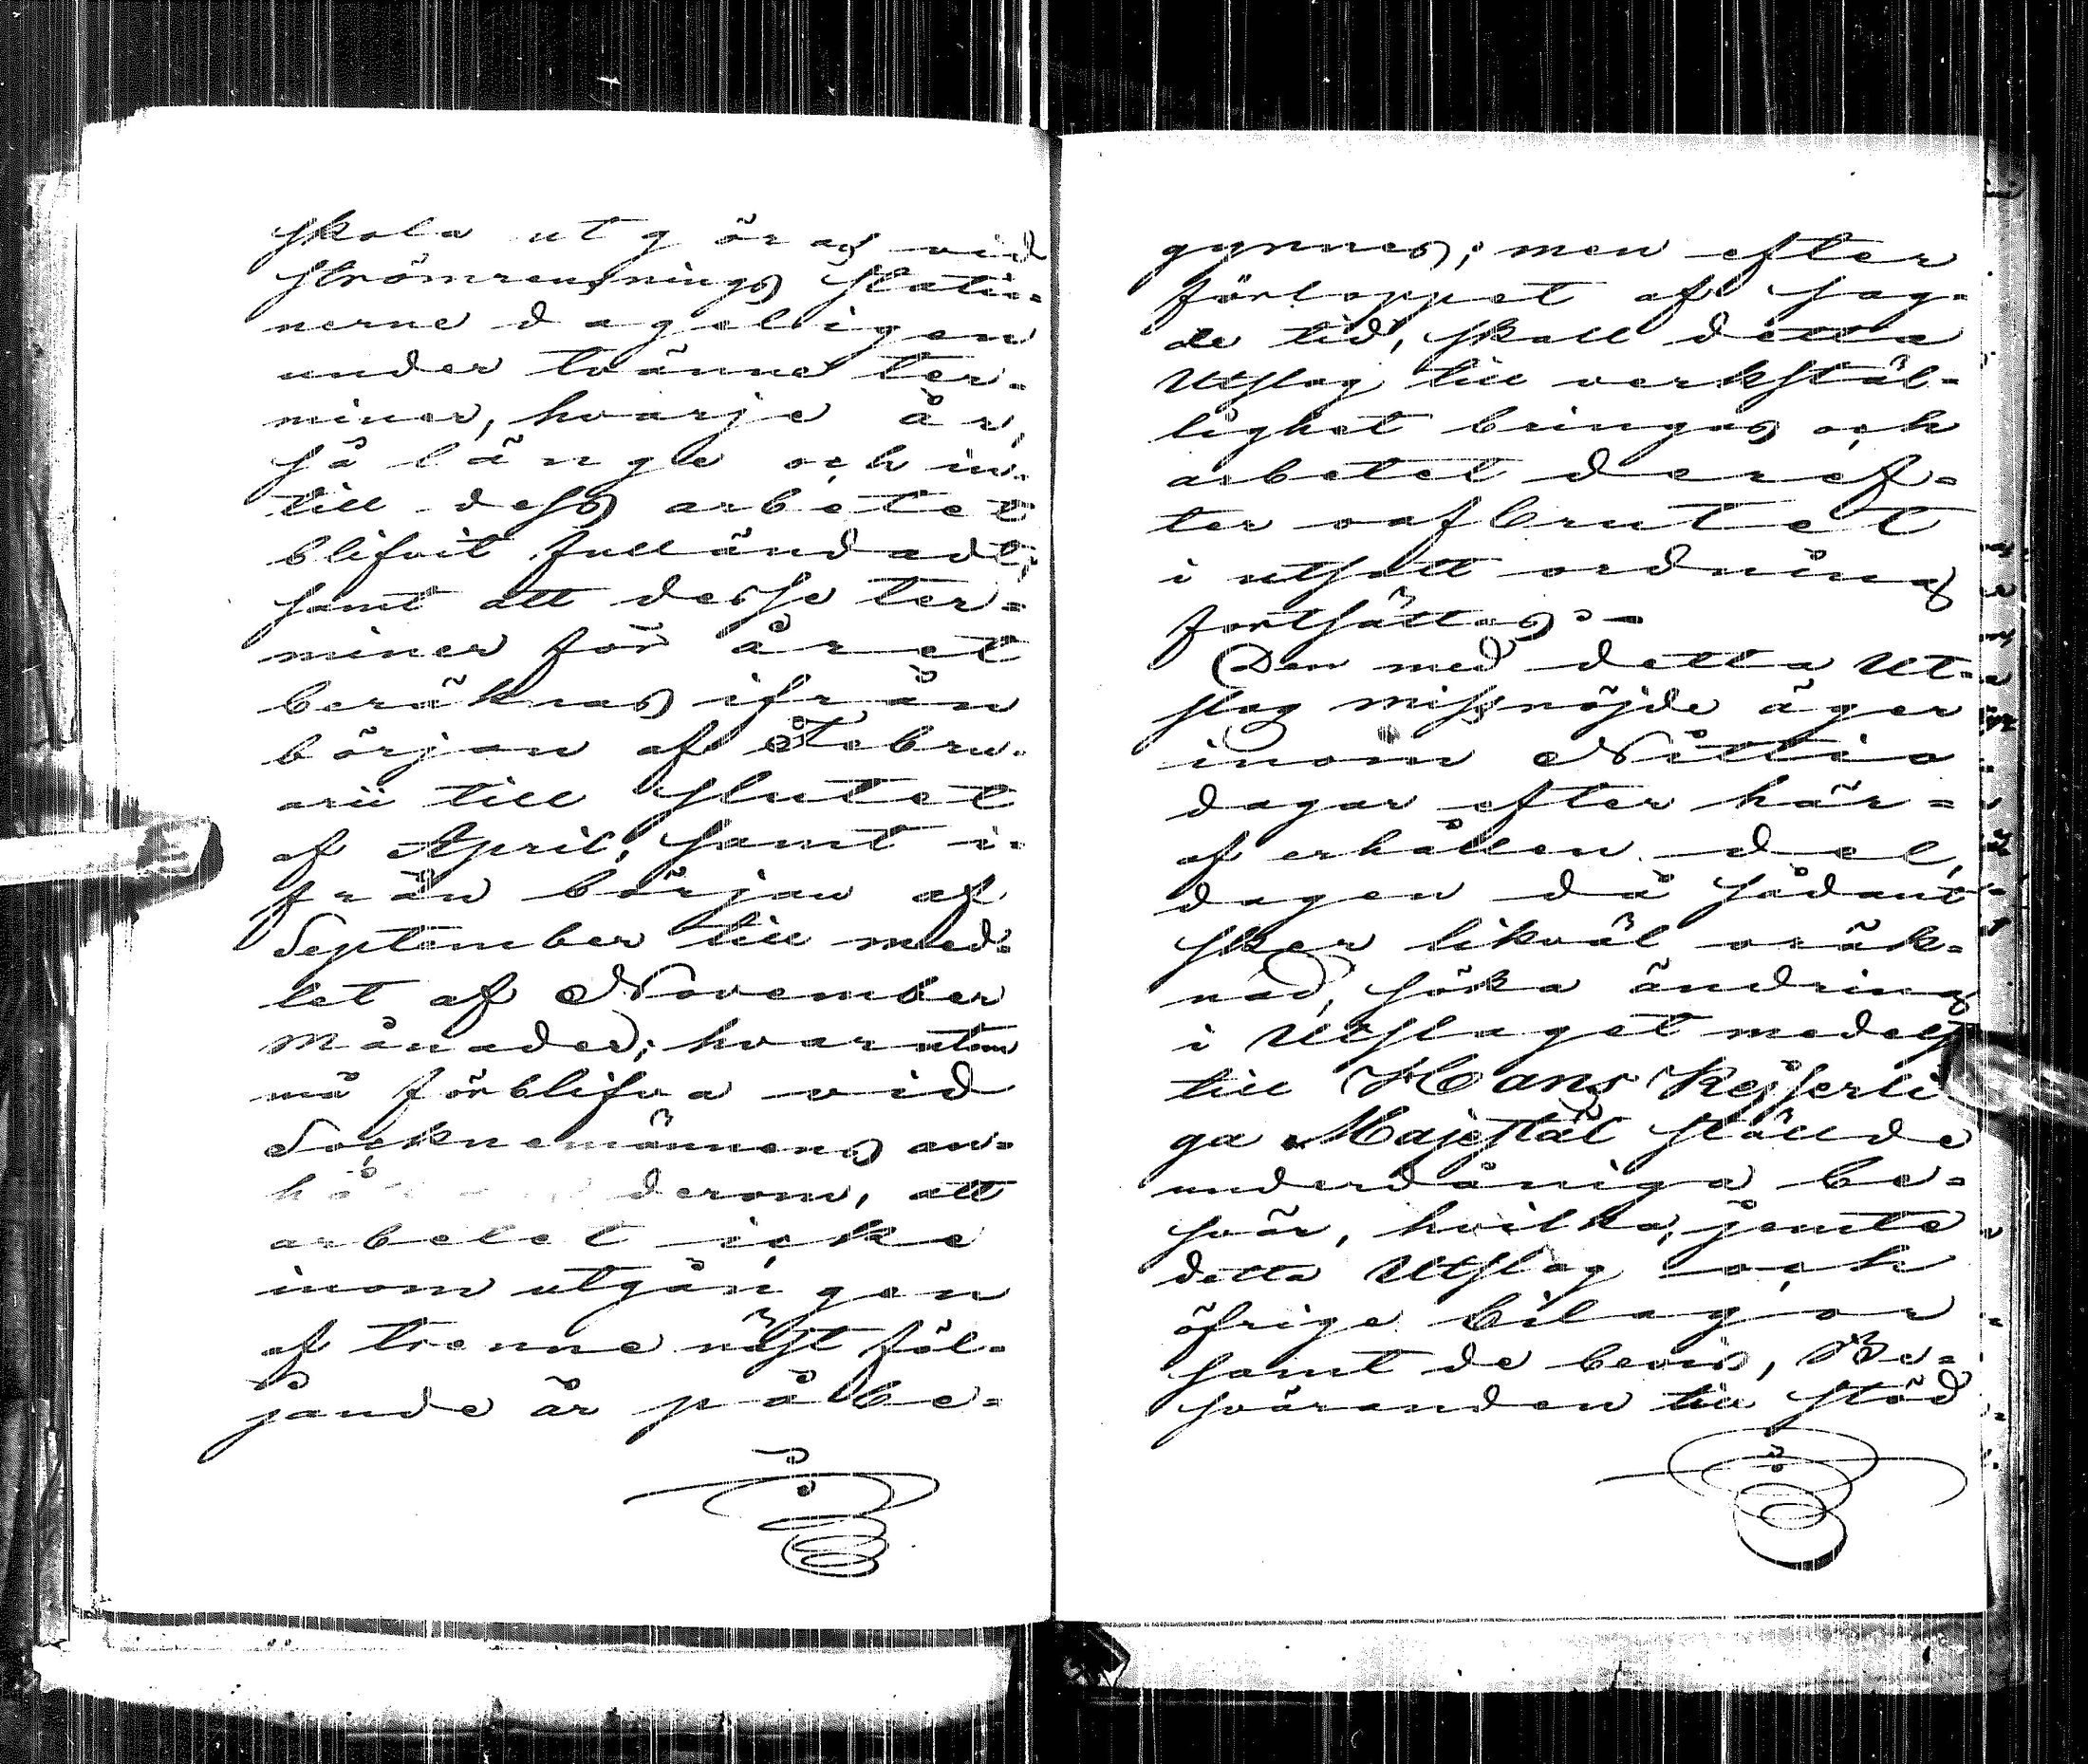 skola utgöras vid
strömrensnings statio=
nerne dageligen
under tvänne ter=
miner, hvarje år,
så länge och in=
till dess arbetet
blifvit fulländadt;
samt att desse ter=
miner för året
beräknas ifrån
början af Febru=
arii till slutet
af April, samt i=
från början af
September till med=
let af November
månader; hvarutom
må förblifva vid
Socknemännens an=
derom, att
arbetet icke
inom utgången
af trenne näst föl=
jande år på be=
gynnes; men efter
förloppet af sag=
de tid, skall detta
Utslag till verkstäl=
lighet bringas och
arbetet deref=
ter oafbrutet
i utsatt ordning
fortsättas.-
Den med detta Ut=
slag missnöjde äger
inom Nittio
dagar efter här=
af erhållen del,
dagen då sådant
sker likväl oräk=
nad, söka ändring
i Utslaget medelst
till Hans Kejserli
ga Majestät ställde
underdåniga be=
svär, hvilka, jemte
detta Utslag och
öfrige bilagor
samt de bevis, Be=
sväranden till stöd